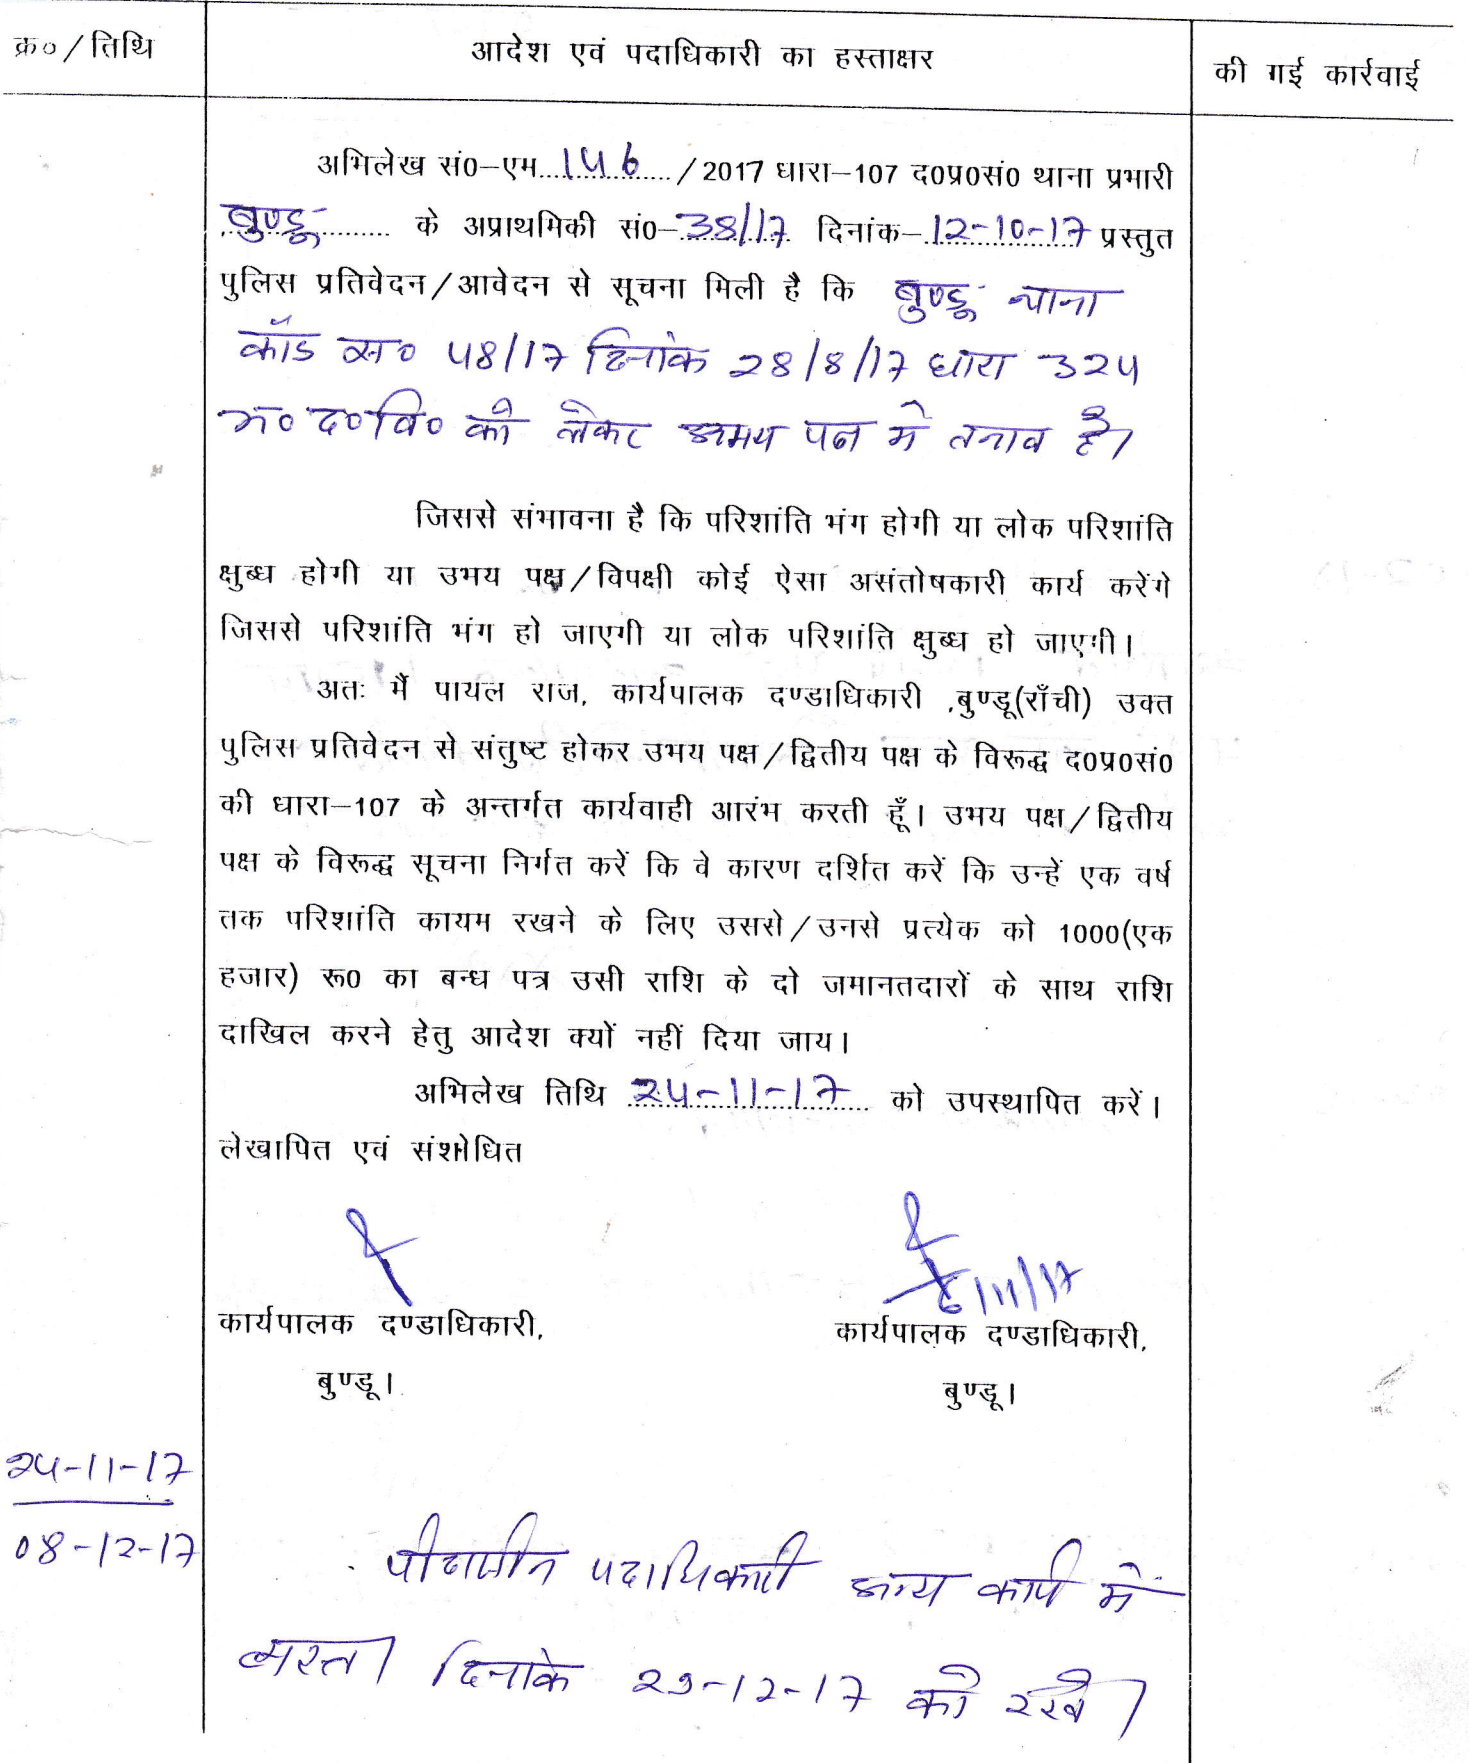 क्र०/तिथि
आदेश एवं पदाधिकारी का हस्ताक्षर
की गई कार्रवाई
अभिलेख सं0-एम 146 /2017 धारा-107 द0प्र0सं0 थाना प्रभारी
बुण्डू के अप्राथमिकी सं0-38/17 दिनांक-12-10-17 प्रस्तुत
पुलिस प्रतिवेदन/आवेदन से सूचना मिली है कि बुण्डू थाना
कांड स० 48/17 दिनांक 28/8/17 धारा 324
भ० द० वि० को लेकर उभय पक्ष मे तनाव है।
जिससे संभावना है कि परिशांति भंग होगी या लोक परिशांति
क्षुब्ध होगी या उभय पक्ष/विपक्षी कोई ऐसा असंतोषकारी कार्य करेंगे
जिससे परिशांति भंग हो जाएगी या लोक परिशांति क्षुब्ध हो जाएगी।
अतः मैं पायल राज, कार्यपालक दण्डाधिकारी ,बुण्डू(राँची) उक्त
पुलिस प्रतिवेदन से संतुष्ट होकर उभय पक्ष/द्वितीय पक्ष के विरूद्ध द0प्र0सं0
की धारा-107 के अन्तर्गत कार्यवाही आरंभ करती हूँ। उभय पक्ष/द्वितीय
पक्ष के विरूद्ध सूचना निर्गत करें कि वे कारण दर्शित करें कि उन्हें एक वर्ष
तक परिशांति कायम रखने के लिए उससे/उनसे प्रत्येक को 1000(एक
हजार) रू0 का बन्ध पत्र उसी राशि के दो जमानतदारों के साथ राशि
दाखिल करने हेतु आदेश क्यों नहीं दिया जाय।
अभिलेख तिथि 24-11-17 को उपस्थापित करें।
लेखापित एवं संशोधित
6/11/17
कार्यपालक दण्डाधिकारी,
कार्यपालक दण्डाधिकारी,
बुण्डू।
बुण्डू।
24-11-17
08-12-17
पीठासीन पदाधिकारी अन्य कार्य में
व्यस्त। दिनांक 29-12-17 को रखें।